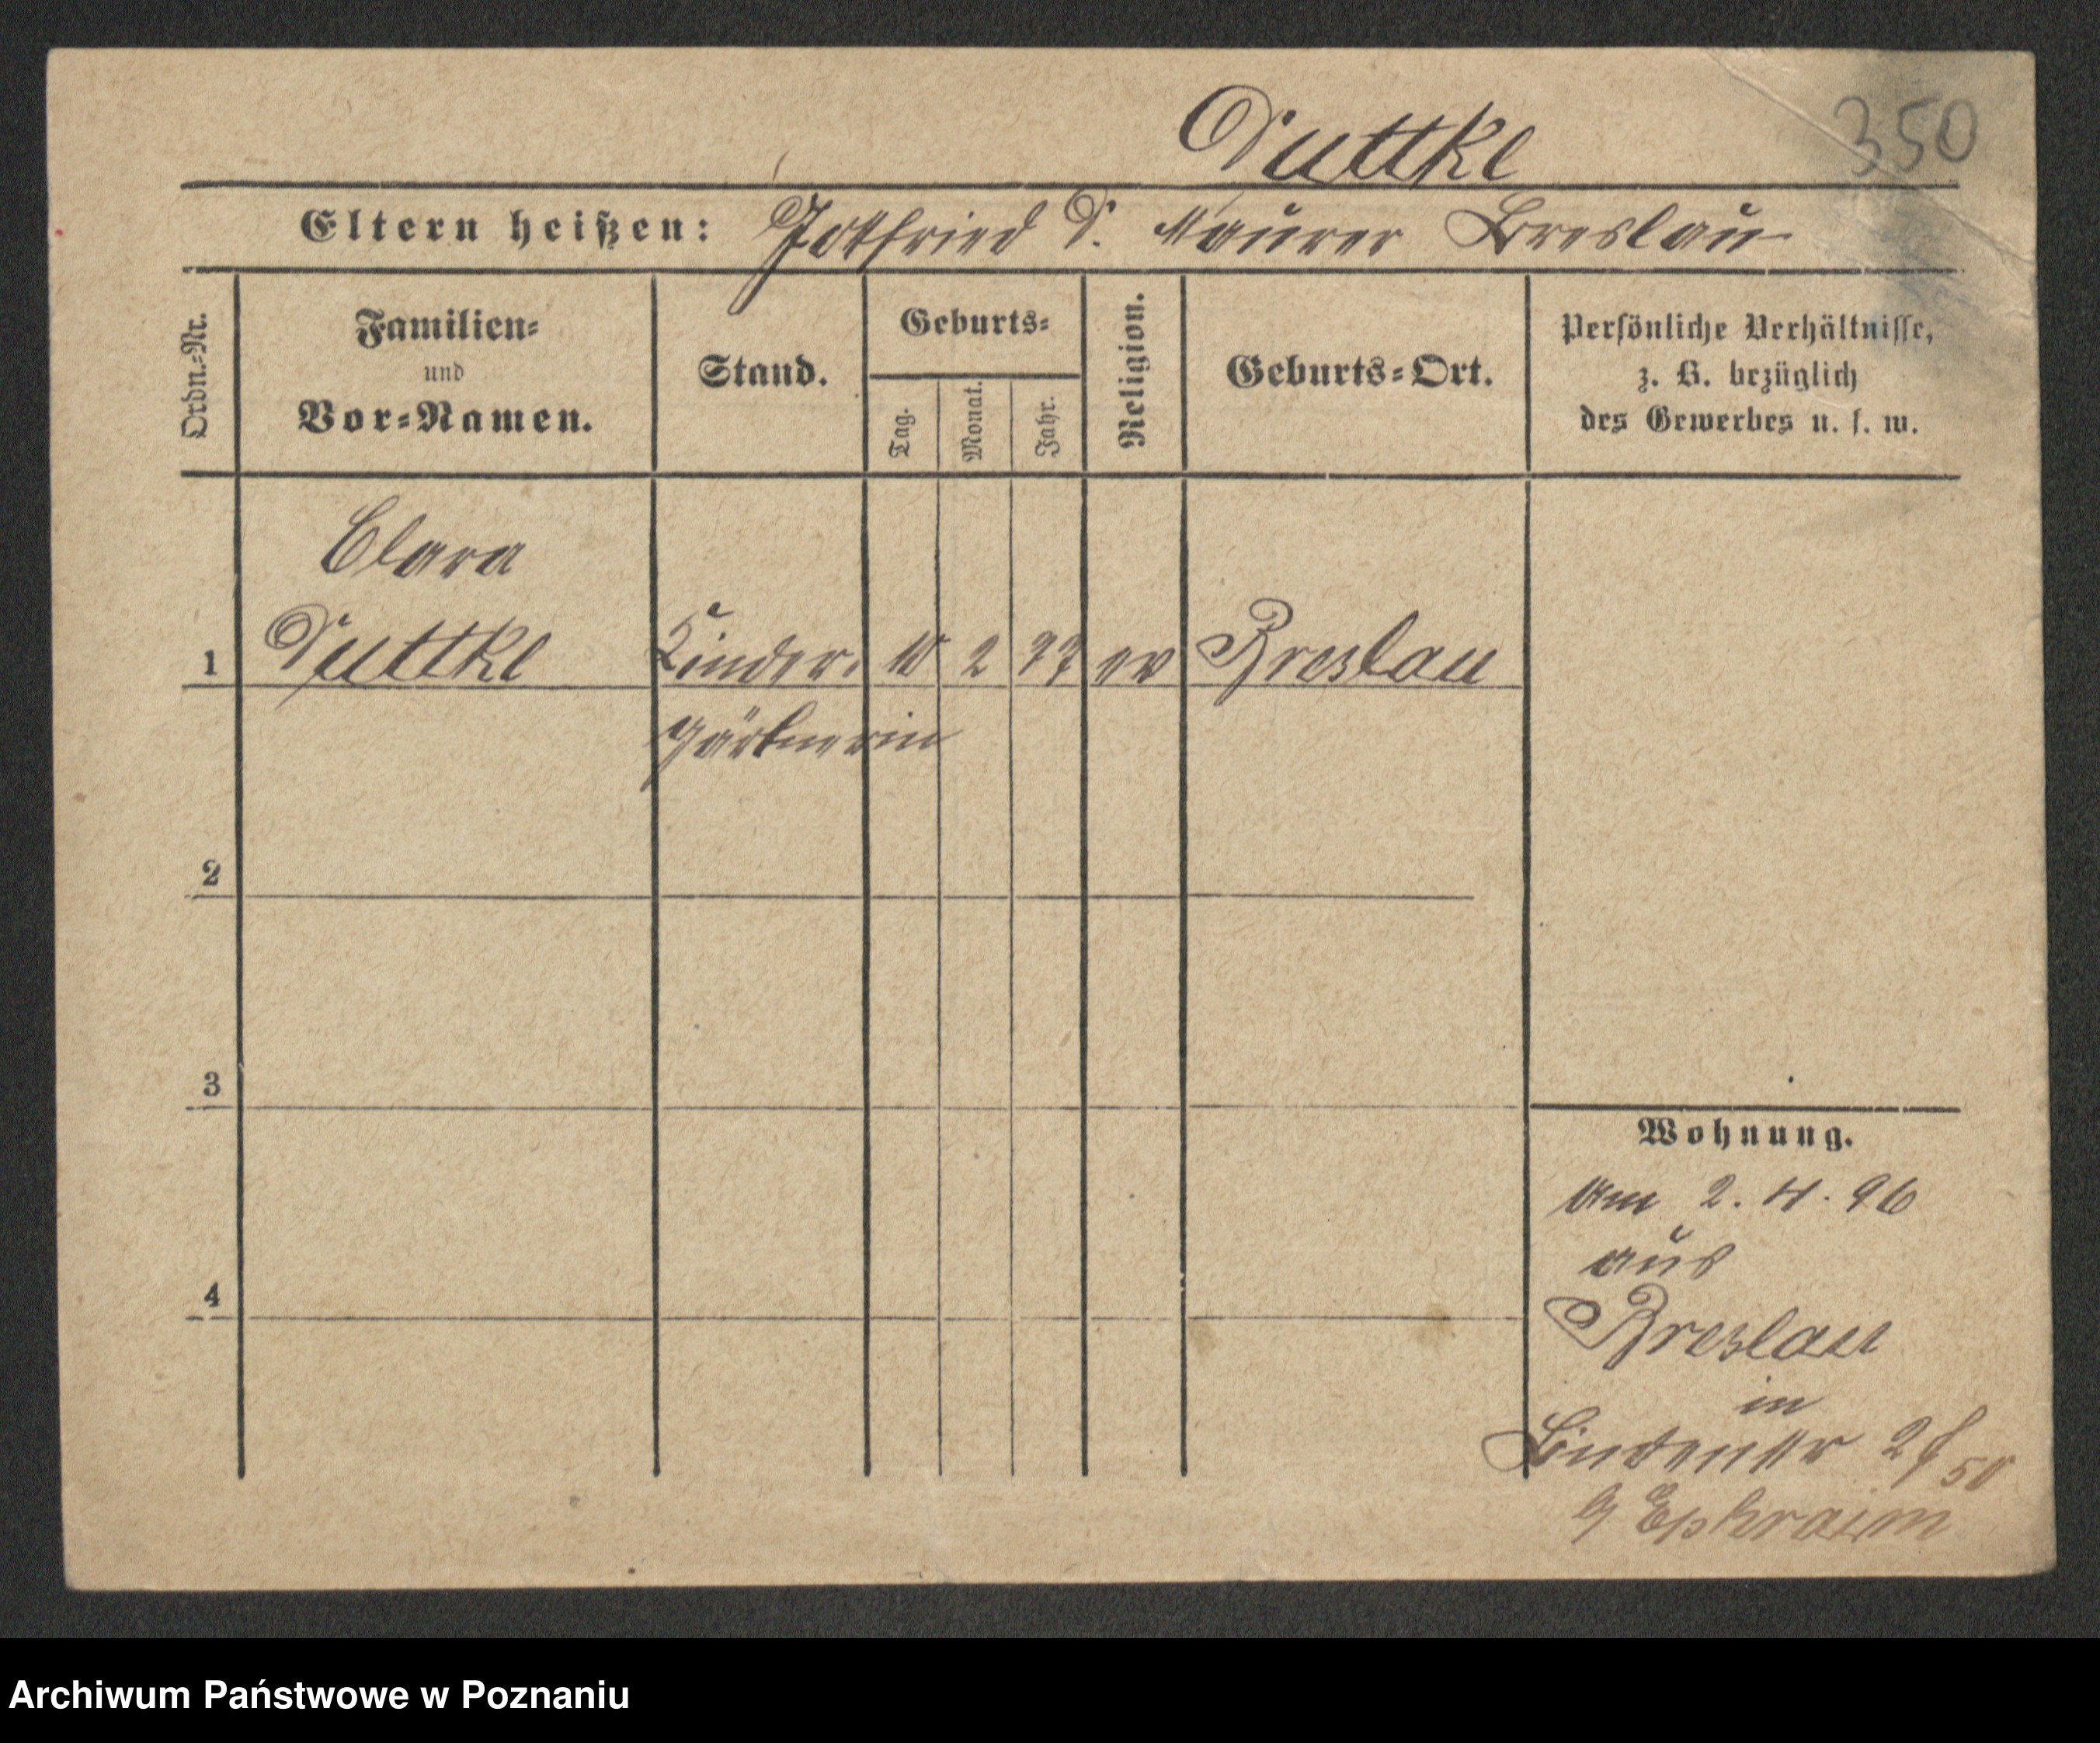 Duttke
350
Eltern heißen: Gottfried D. Maurer Breslau
Ordn.=Nr.
Familien=
und
Vor=Namen.
Stand.
Geburts=
Tag.
Monat.
Jahr.
Religion.
Geburts=Ort.
Persönliche Verhältnisse,
z. B. bezüglich
des Gewerbes u. s. w.
Clara
1 Duttke Kinder. 10 2 77 ev Breslau
gärtnerin
2
3
4
Wohnung.
Am 2. 4. 96
aus
Breslau
in
Lindenstr
Ephraim
Archiwum Państwowe w Poznaniu